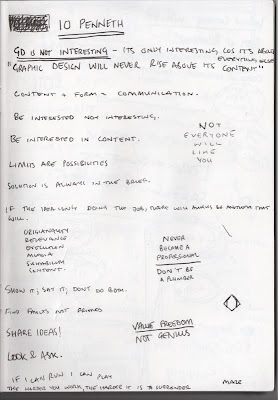 10 PENNETH
GD IS NOT INTERESTING - ITS ONLY INTERESTING COS ITS ABOUT
EVERYTHING ELSE
"GRAPHIC DESIGN WILL NEVER RISE ABOVE ITS CONTENT"
CONTENT + FORM = COMMUNICATION.
BE INTERESTED NOT INTERESTING.
BE INTERESTED IN CONTENT.
NOT
EVERYONE
WILL
LIKE
YOU
LIMITS ARE POSSIBILITIES
SOLUTION IS ALWAYS IN THE BRIEF.
IF THE IDEA ISN'T DOING THE JOB, THERE WILL ALWAYS BE ANOTHER THAT
WILL.
ORIGINALITY
RELEVANCE
EVOLUTION
MEDIA
CONTENT.
NEVER
BECOME A
PROFESSIONAL
DON'T BE
A PLUMBER
SHOW IT, SAY IT, DON'T DO BOTH.
FIND FAULTS NOT
VALUE FREEDOM
NOT GENIUS
SHARE IDEAS!
LOOK & ASK.
IF I CAN RUN I CAN PLAY
THE HARDER YOU WORK, THE HARDER IT IS TO SURRENDER